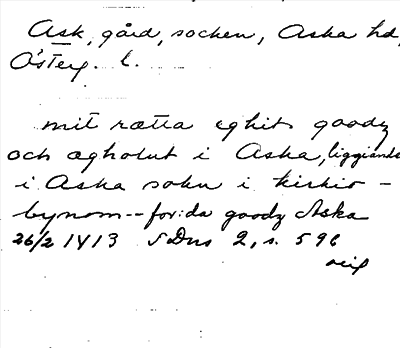 Ask, gård, socken, Aska hd,
Österg. l.
mit rætta eghit goodz
och ægholut i Aska, liggiande
i Aska sokn i kirkio-
bynom -- for:da goodz Aska
26/2 1413 SDns 2, s. 596